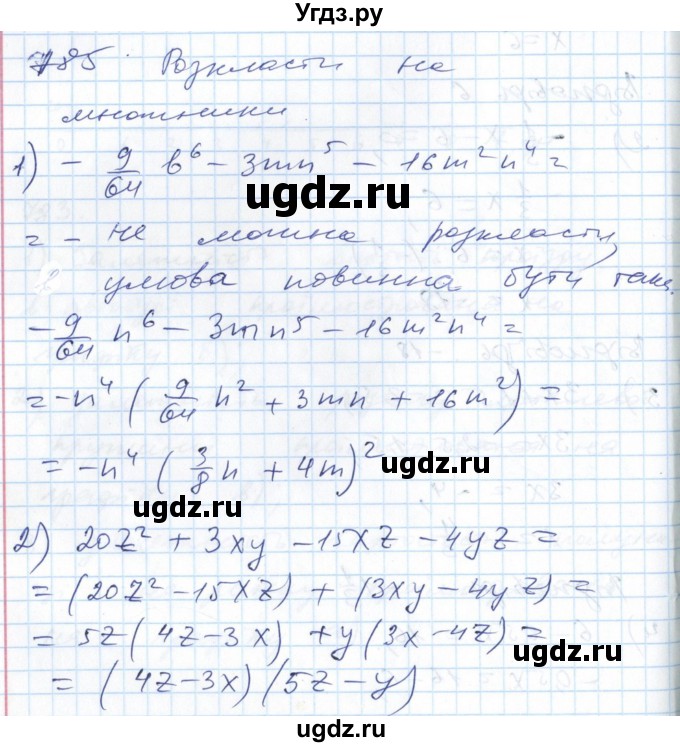 Угдз.ру
785. Розкласти на
множники.
1) - 9/64 b^6 - 3mn^5 - 16m^2n^4 =
ugdz.ru ugdz.ru
= - не можна розкласти,
умова повинна бути така.
- 9/64 n^6 - 3mn^5 - 16m^2n^4 =
ugdz.ru
= -n^4 ( 9/64 n^2 + 3mn + 16m^2 ) =
= -n^4 ( 3/8 n + 4m )^2
ugdz.ru
ugdz.ru
2) 20z^2 + 3xy - 15xz - 4yz =
= (20z^2 - 15xz) + (3xy - 4yz) =
= 5z(4z - 3x) + y(3x - 4z) =
ugdz.ru
ugdz.ru
= (4z - 3x)(5z - y)
ugdz.ru